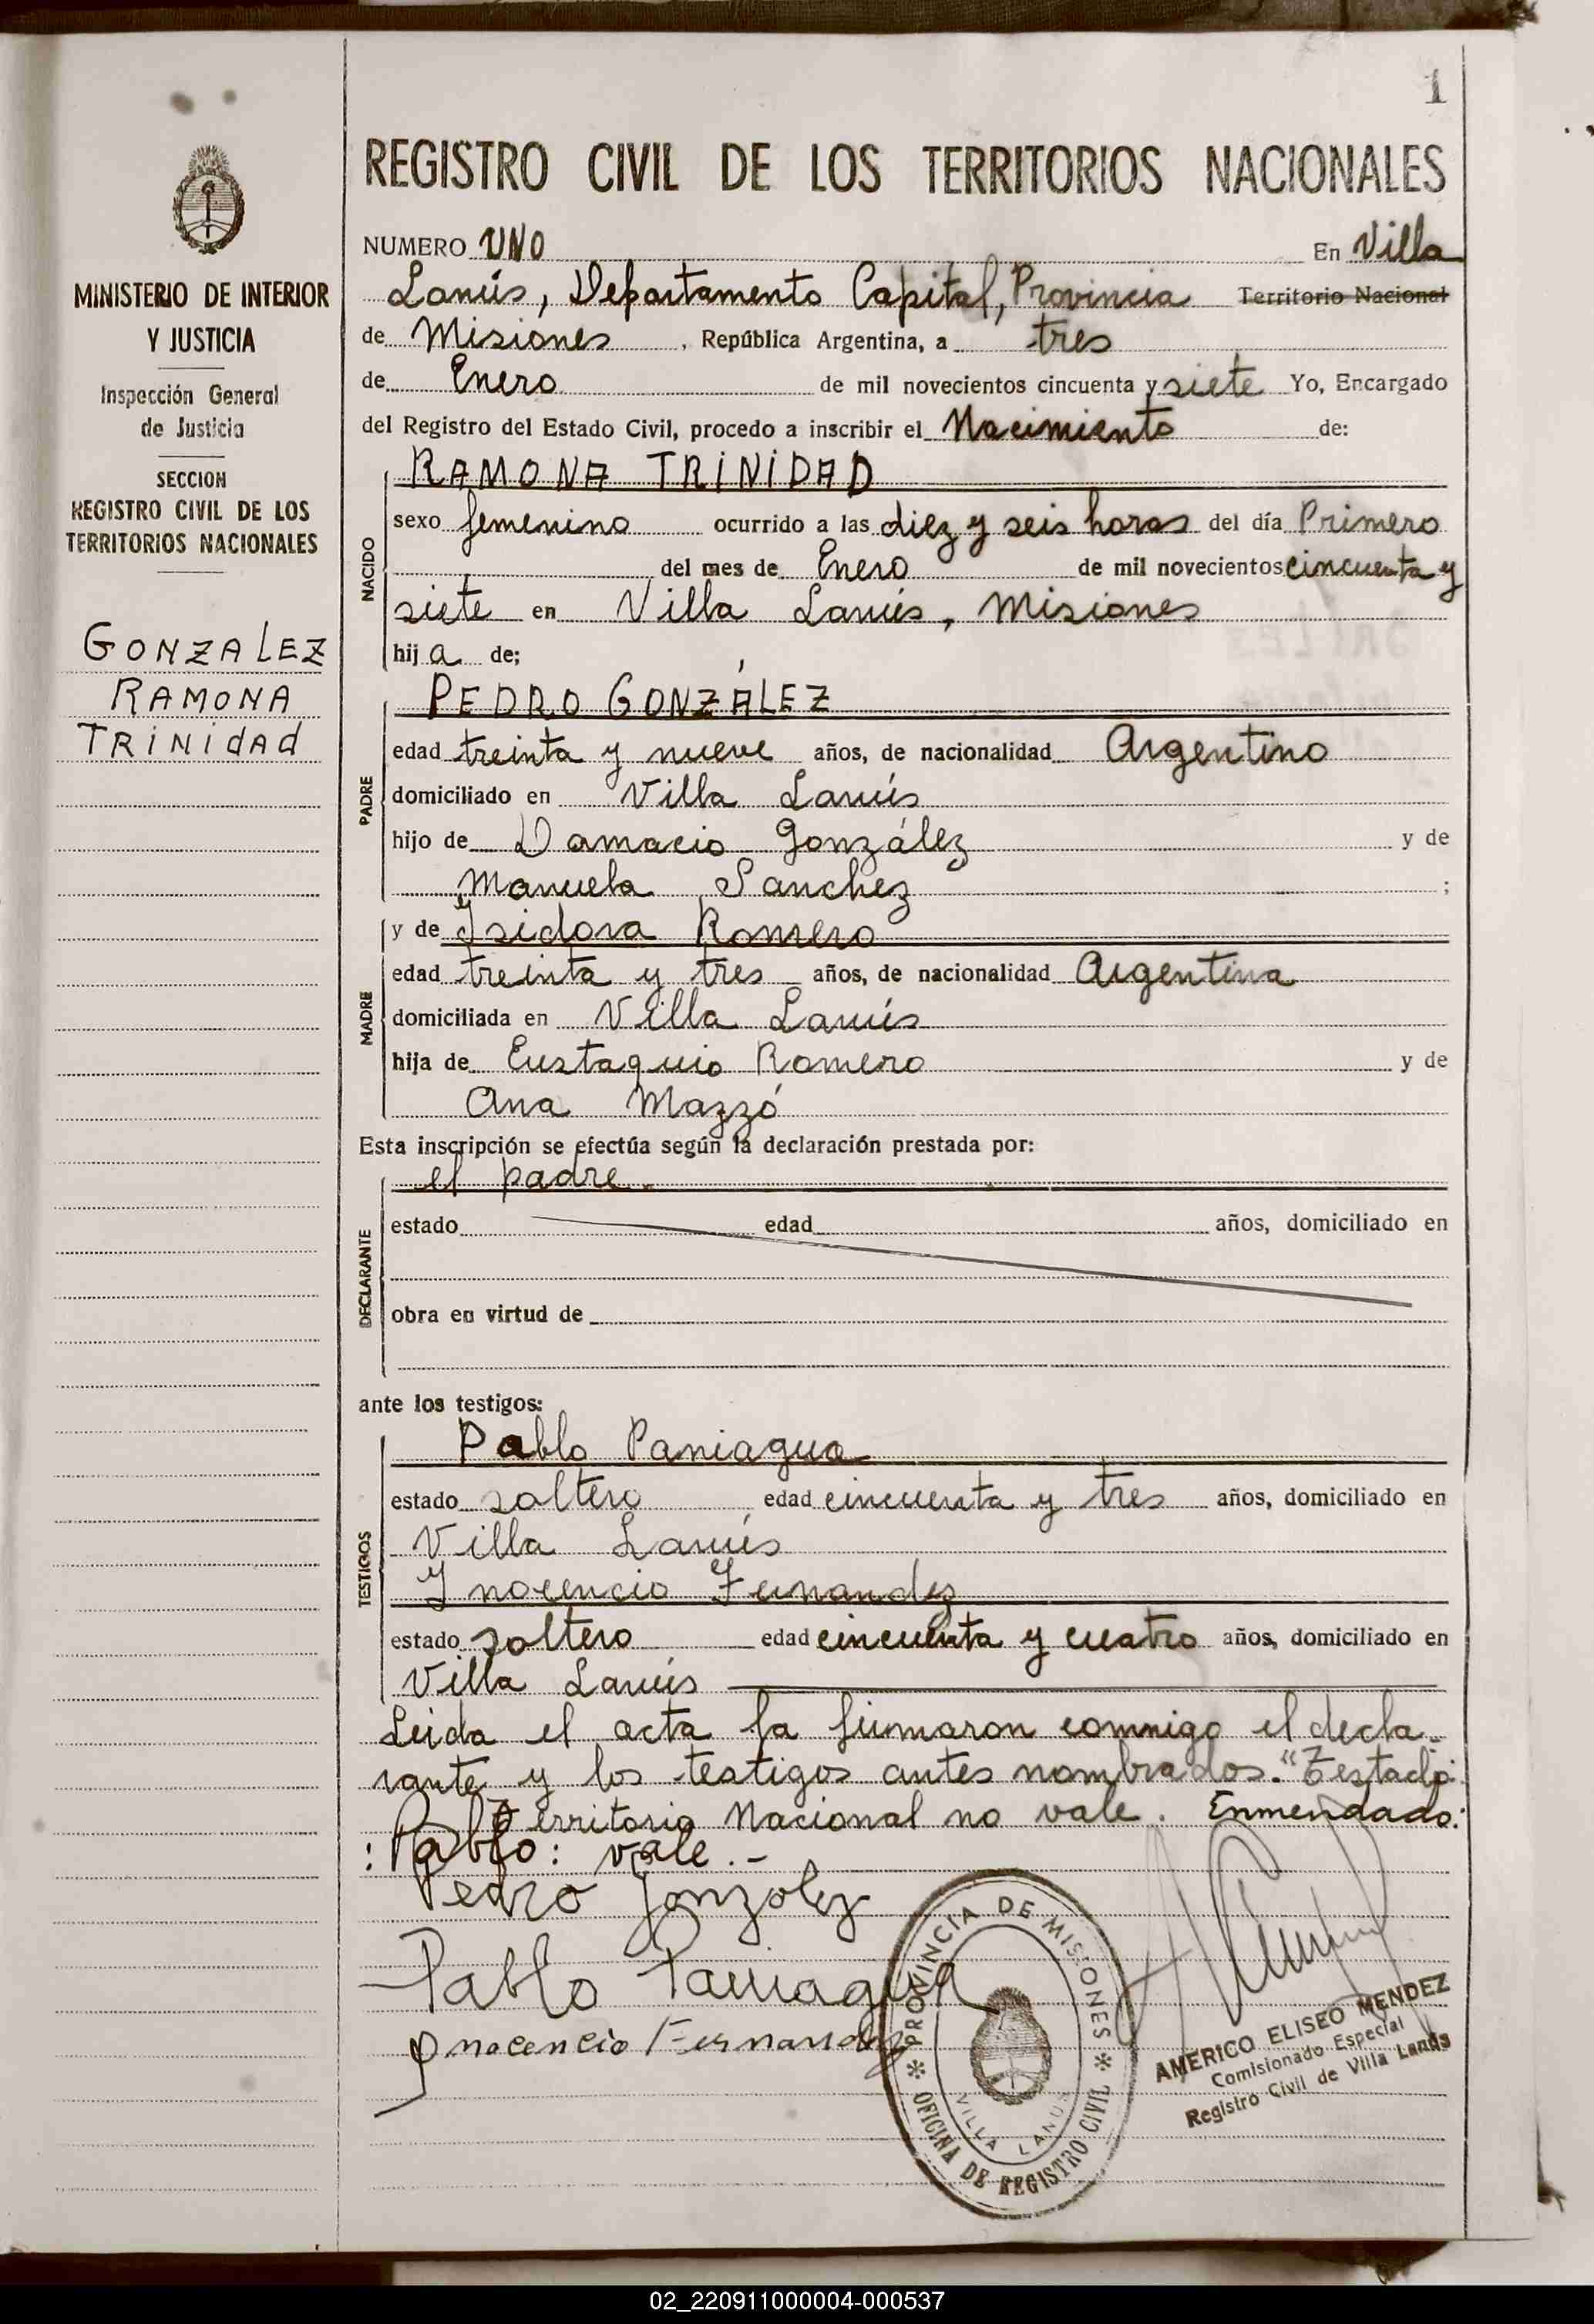 1
REGISTRO CIVIL DE LOS TERRITORIOS NACIONALES
MINISTERIO DE INTERIOR
Y JUSTICIA
Inspección General
de Justicia
SECCION
REGISTRO CIVIL DE LOS
TERRITORIOS NACIONALES
GONZALEZ
RAMONA
TRINIDAD
NUMERO UNO En Villa
Lanús, Departamento Capital, Provincia Territorio Nacional
de Misiones , República Argentina, a tres
de Enero de mil novecientos cincuenta y siete Yo, Encargado
del Registro del Estado Civil, procedo a inscribir el Nacimiento de:
NACIDO
RAMONA TRINIDAD
sexo femenino ocurrido a las diez y seis horas del día Primero
del mes de Enero de mil novecientos cincuenta y
siete en Villa Lanús, Misiones
hij a de;
PADRE
PEDRO GONZÁLEZ
edad treinta y nueve años, de nacionalidad Argentino
domiciliado en Villa Lanús
hijo de Damacio González y de
Manuela Sanchez ;
MADRE
y de Isidora Romero
edad treinta y tres años, de nacionalidad Argentina
domiciliada en Villa Lanús
hija de Eustaquio Romero y de
Ana Mazzó
Esta inscripción se efectúa según la declaración prestada por:
DECLARANTE
el padre.
estado edad años, domiciliado en
obra en virtud de
ante los testigos:
TESTIGOS
Pablo Paniagua
estado soltero edad cincuenta y tres años, domiciliado en
Villa Lanús
Inocencio Fernandez
estado soltero edad cincuenta y cuatro años, domiciliado en
Villa Lanús
Leida el acta la firmaron conmigo el decla-
rante y los testigos antes nombrados. "Testado:
Territorio Nacional no vale. Enmendado:
: Pablo: vale.-
Pedro Gonzalez
Pablo Paniagua
Inocencio Fernandez
PROVINCIA DE MISIONES
OFICINA DE REGISTRO CIVIL
VILLA LANUS
AMERICO ELISEO MENDEZ
Comisionado Especial
Registro Civil de Villa Lanús
02_220911000004-000537